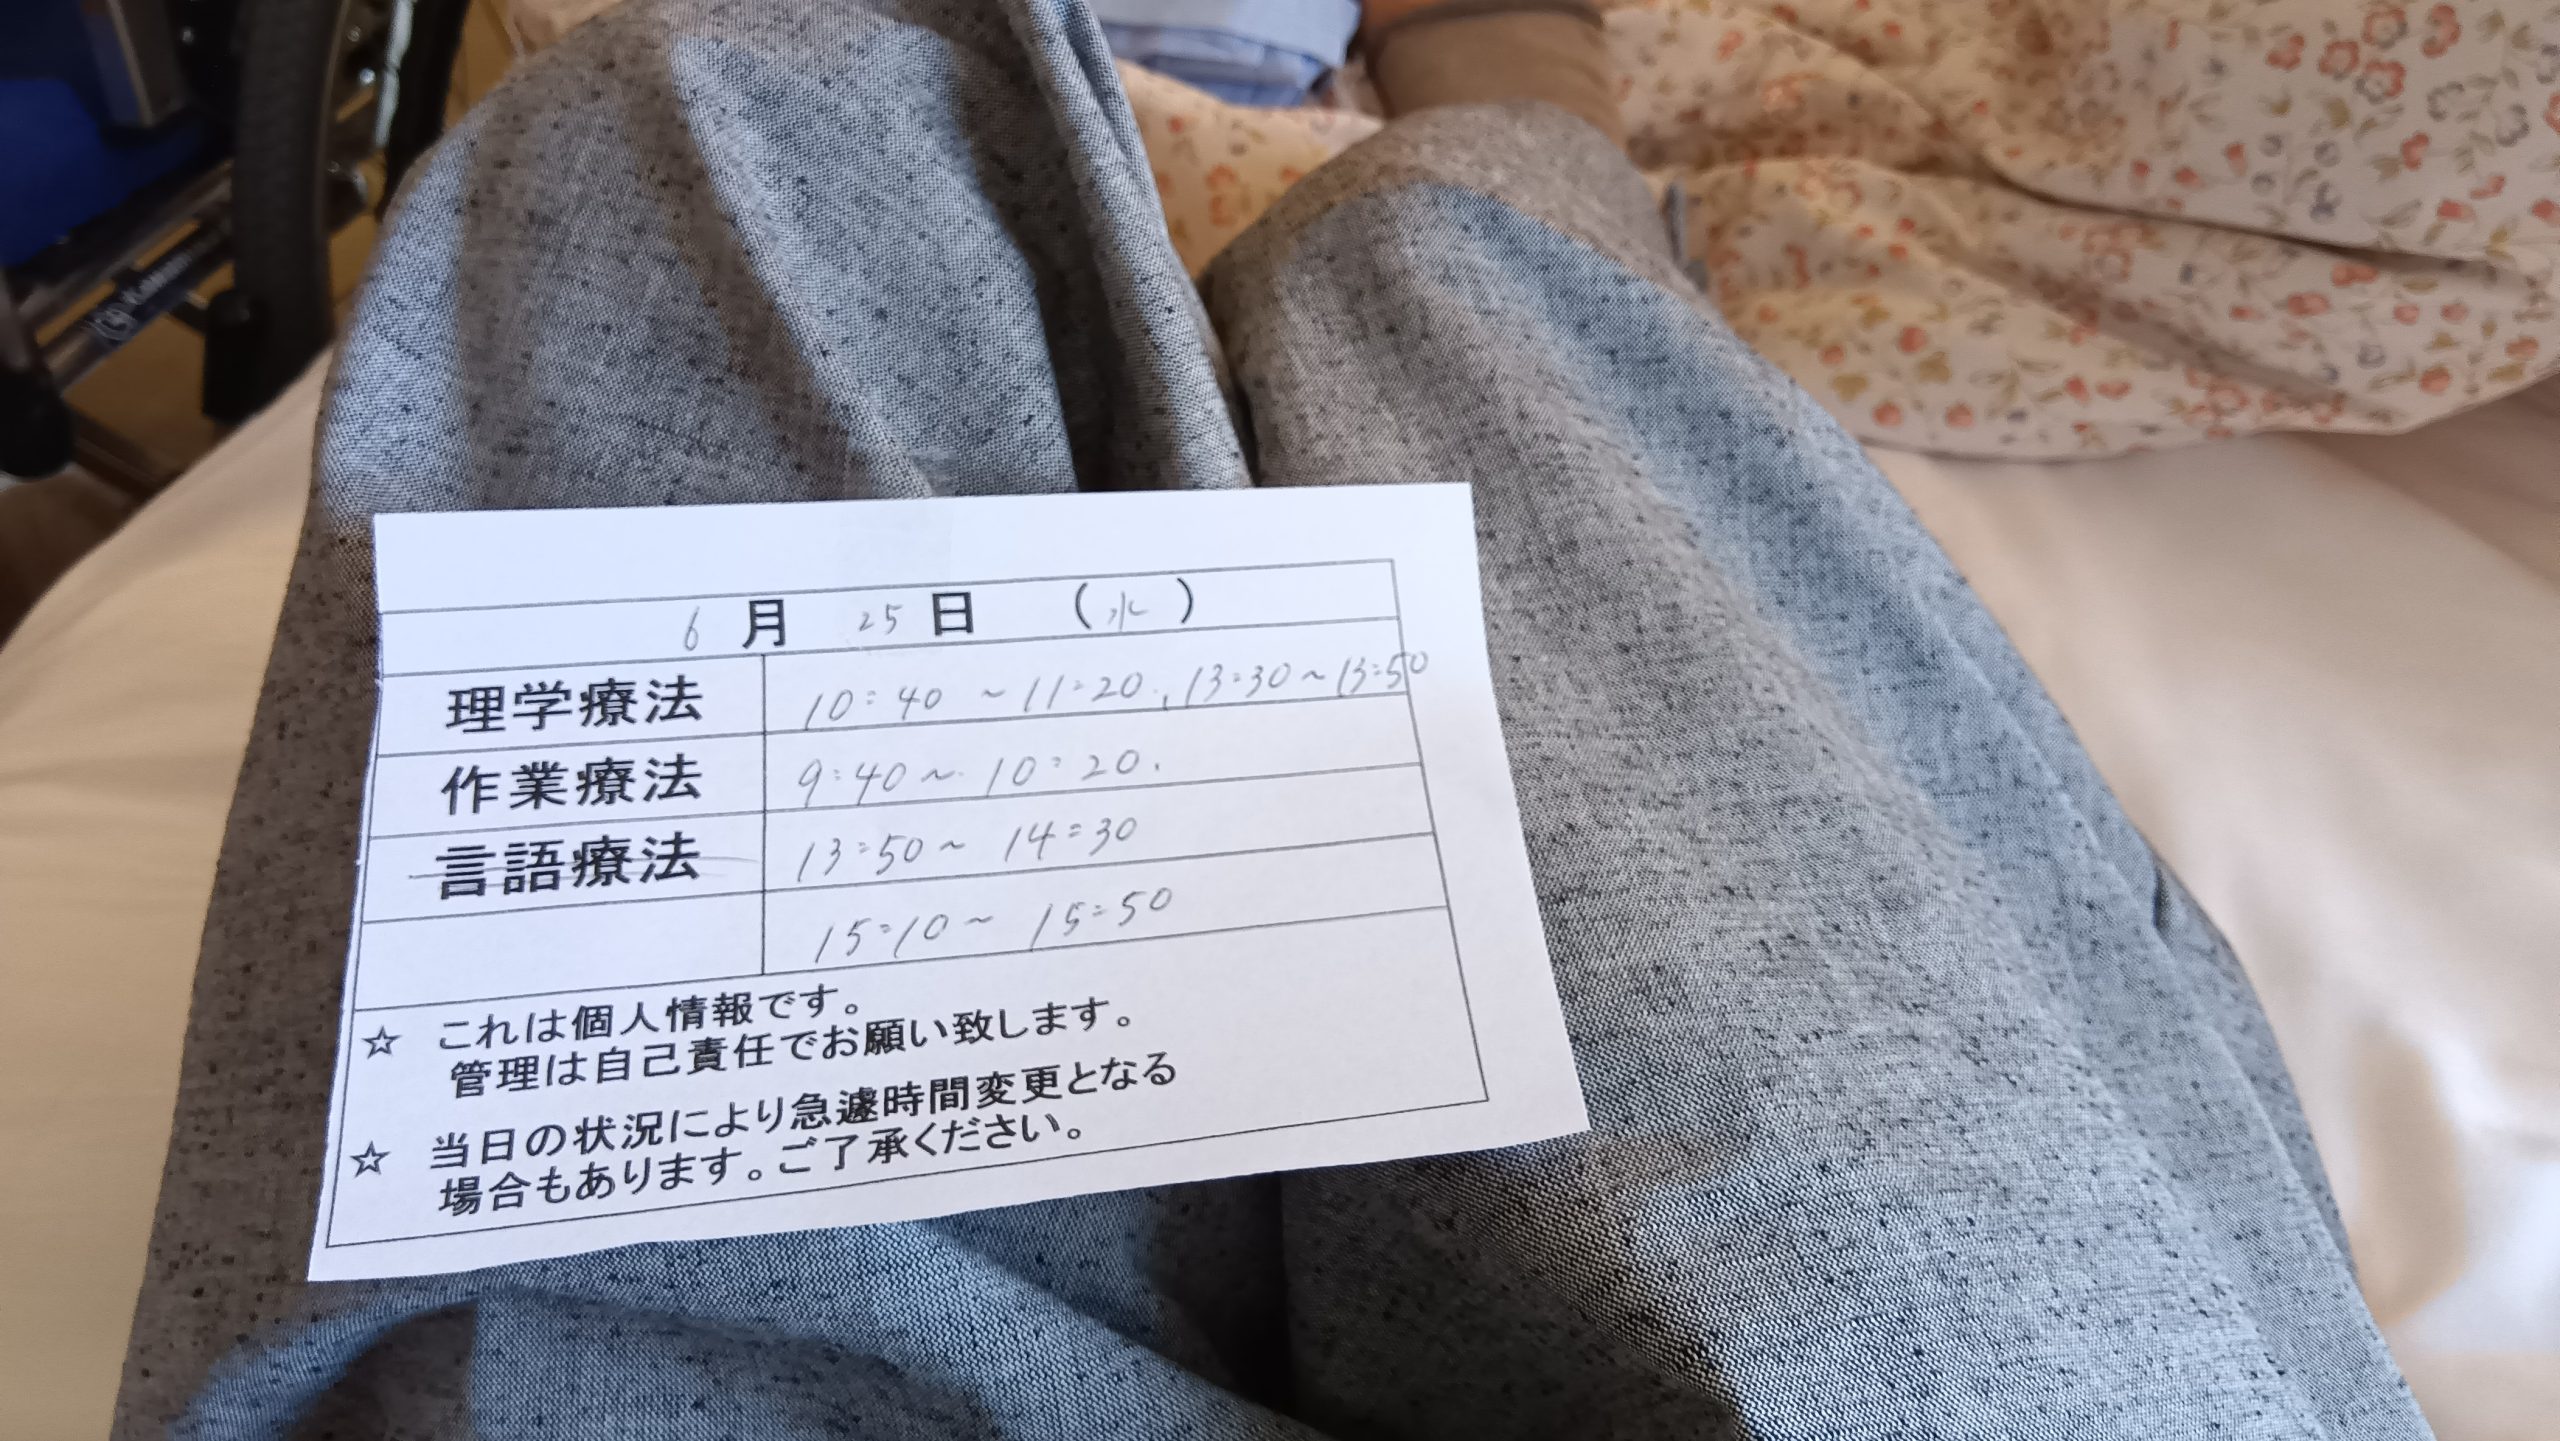 6 月 25 日 (水)
理学療法 10:40 ~ 11:20, 13:30~13:50
作業療法 9:40~ 10:20.
言語療法 13:50~ 14:30
15:10~ 15:50
☆ これは個人情報です。
管理は自己責任でお願い致します。
☆ 当日の状況により急遽時間変更となる
場合もあります。ご了承ください。